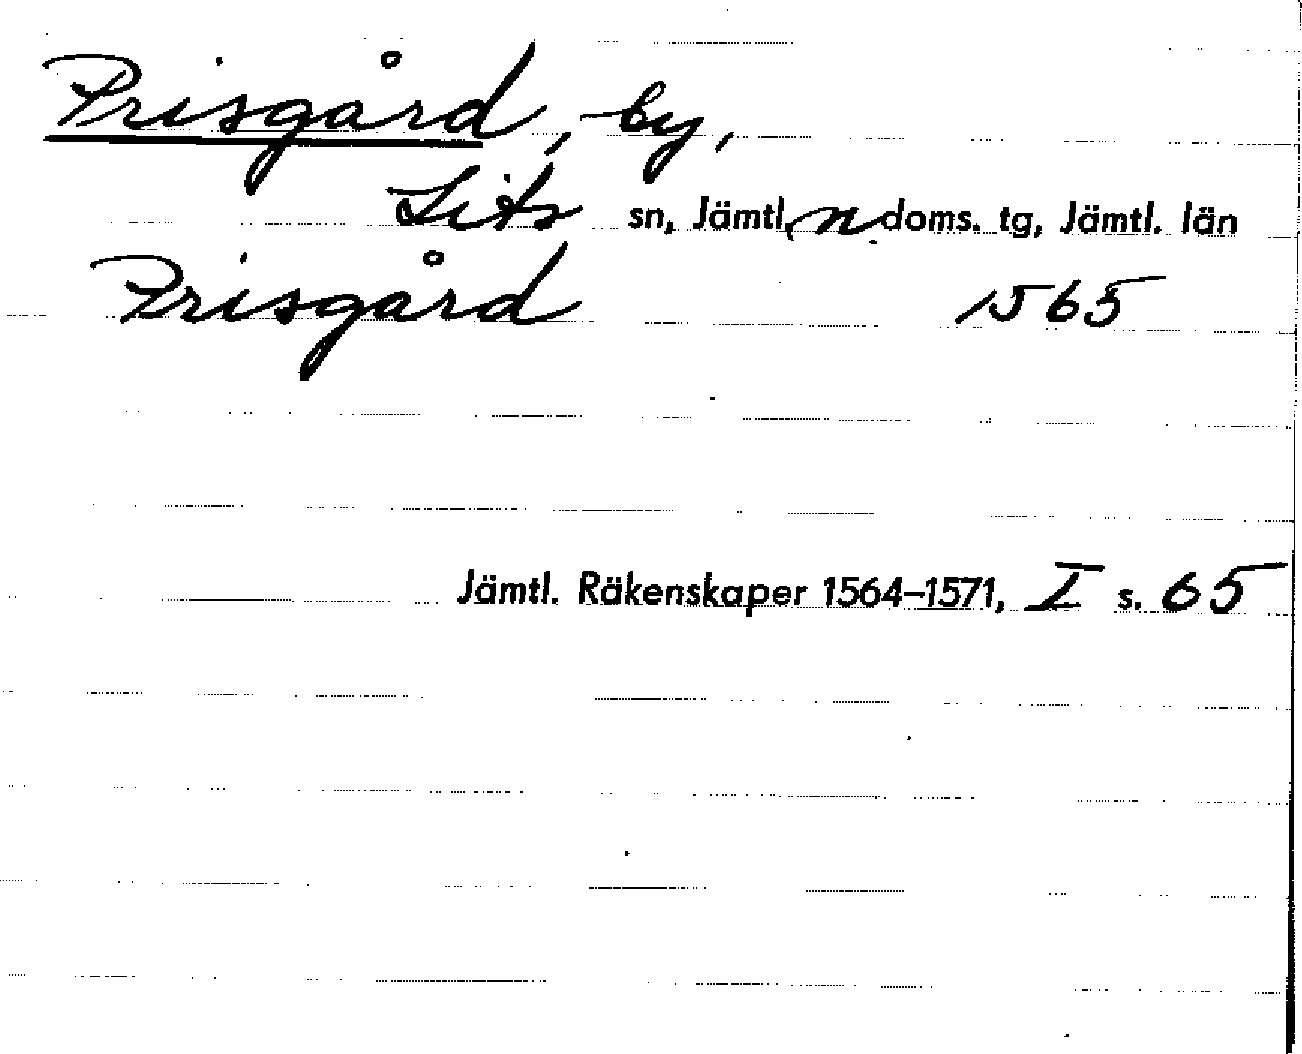 Prisgård, by,
Lits sn, Jämtl. n doms. tg, Jämtl. län
Prisgård 1565
Jämtl. Räkenskaper 1564–1571, I s. 65